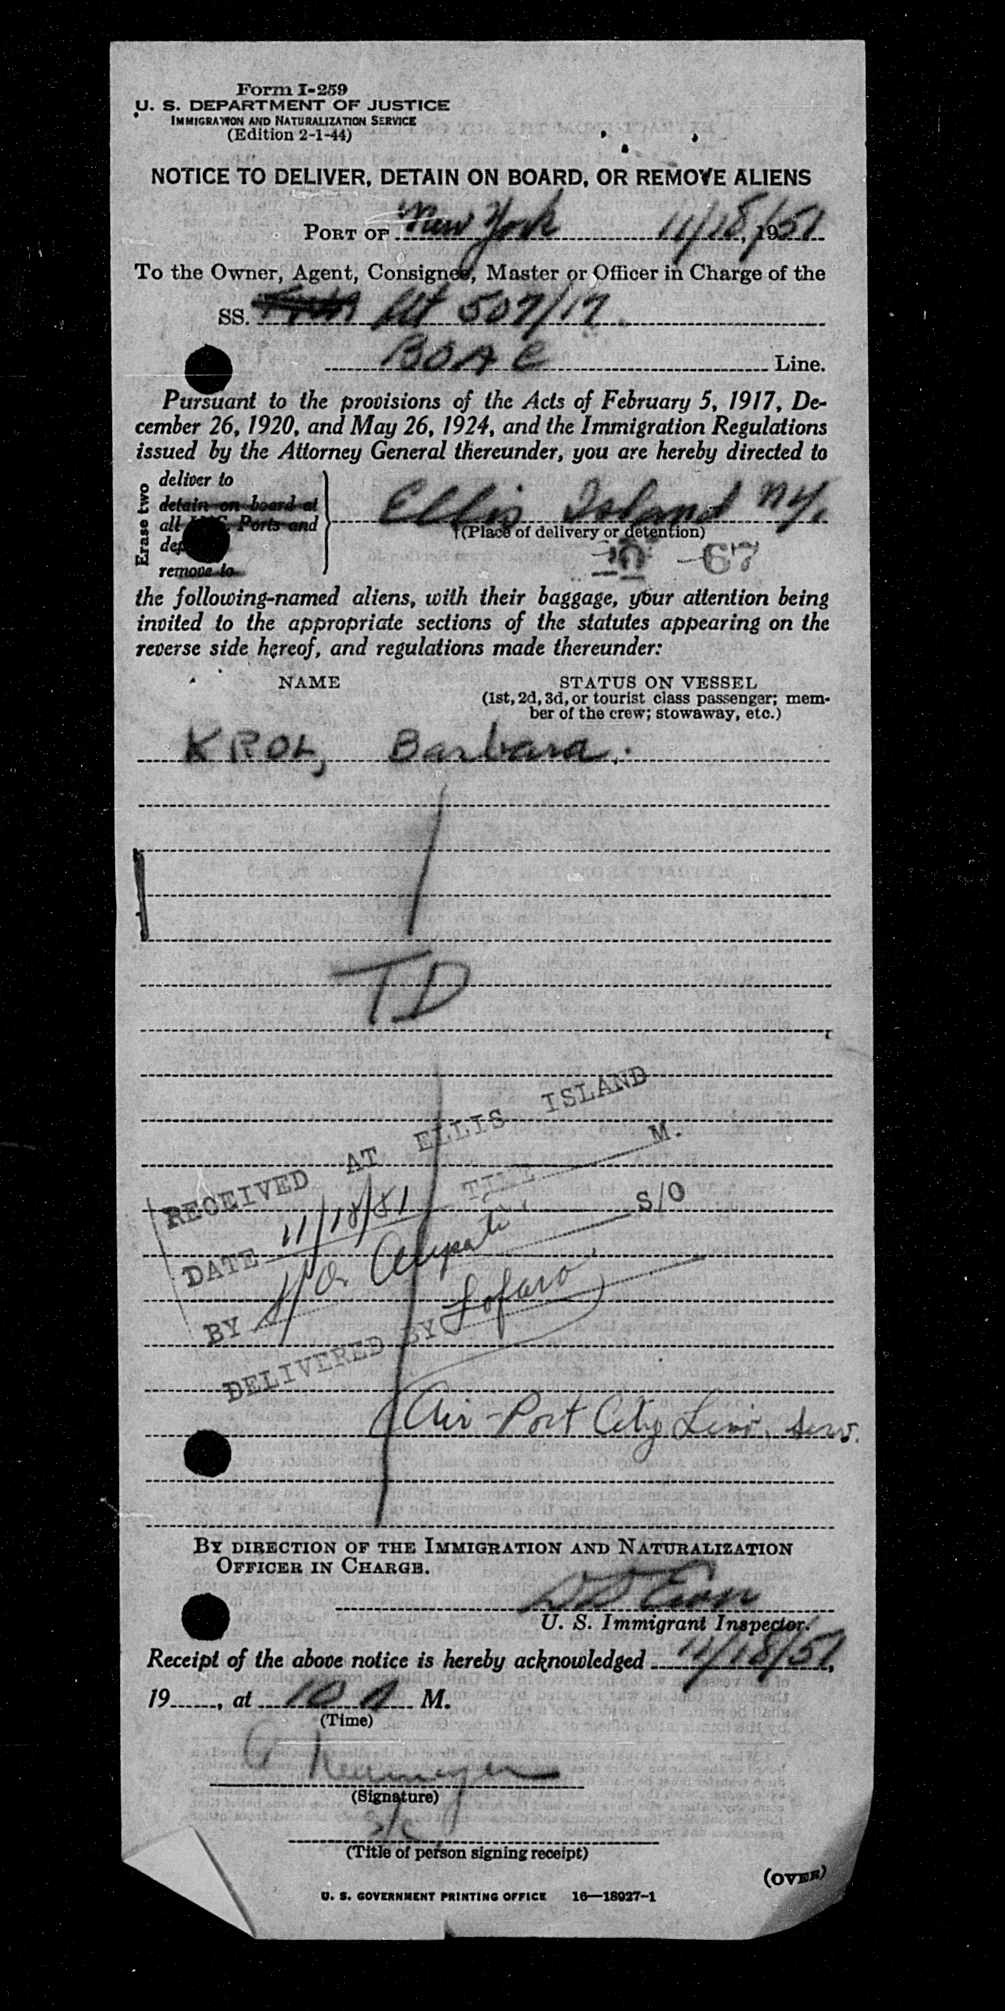 Form I-259
U. S. DEPARTMENT OF JUSTICE
IMMIGRATION AND NATURALIZATION SERVICE
(Edition 2-1-44)
NOTICE TO DELIVER, DETAIN ON BOARD, OR REMOVE ALIENS
PORT OF New York 11/18, 1951
To the Owner, Agent, Consignee, Master or Officer in Charge of the
SS. flt 507/17
BOAC Line.
Pursuant to the provisions of the Acts of February 5, 1917, De-
cember 26, 1920, and May 26, 1924, and the Immigration Regulations
issued by the Attorney General thereunder, you are hereby directed to
Erase two
deliver to
detain on board at
all U.S. Ports and
remove to
Ellis Island NY.
(Place of delivery or detention)
67
the following-named aliens, with their baggage, your attention being
invited to the appropriate sections of the statutes appearing on the
reverse side hereof, and regulations made thereunder:
NAME STATUS ON VESSEL
(1st, 2d, 3d, or tourist class passenger; mem-
ber of the crew; stowaway, etc.)
KROL, Barbara.
TD
RECEIVED AT ELLIS ISLAND
DATE 11/18/51 TIME M.
BY S/O
DELIVERED BY Lofaro
Air-Port City Limo. Serv.
BY DIRECTION OF THE IMMIGRATION AND NATURALIZATION
OFFICER IN CHARGE.
U. S. Immigrant Inspector.
Receipt of the above notice is hereby acknowledged 11/18/51,
19, at 10 A M.
(Time)
(Signature)
(Title of person signing receipt)
(OVER)
U. S. GOVERNMENT PRINTING OFFICE 16—18927-1